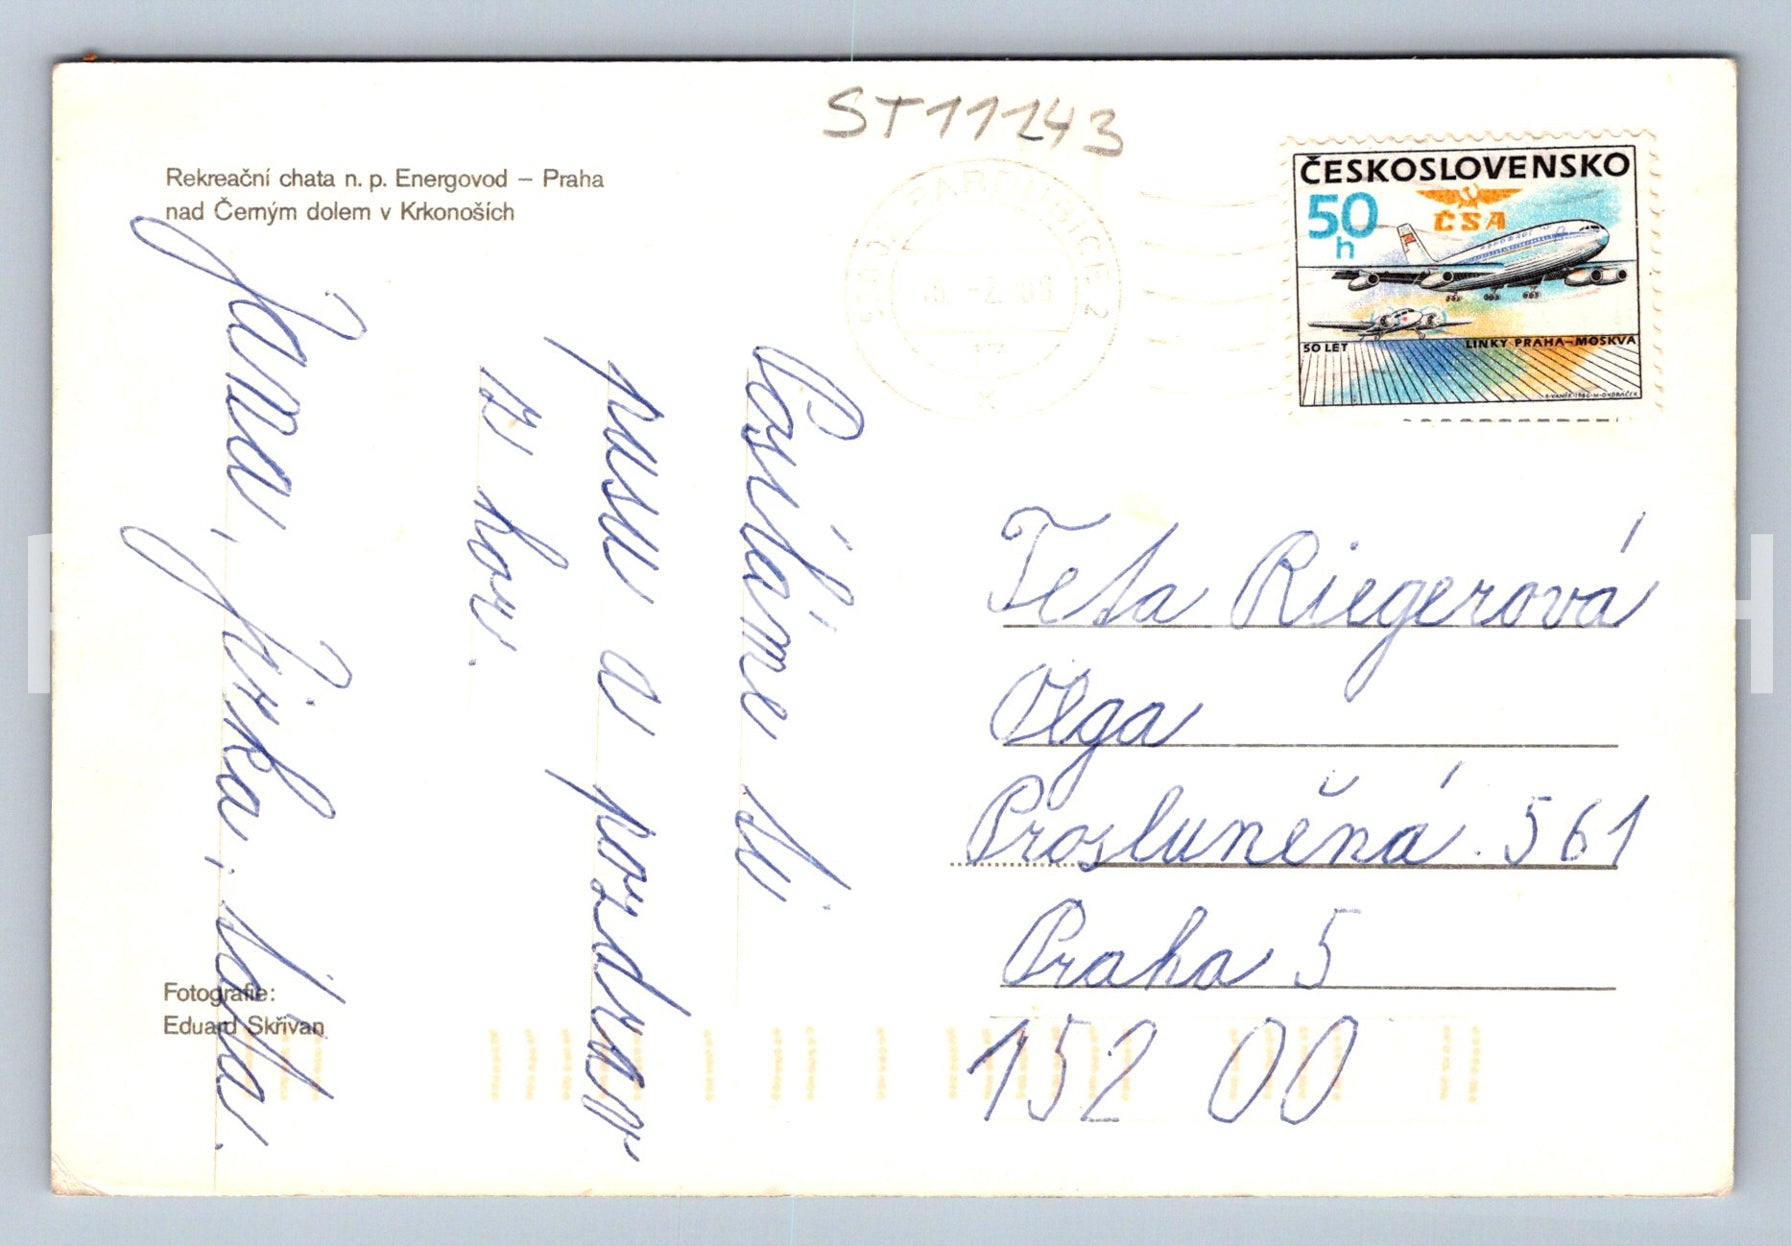 ST11243
Rekreační chata n. p. Energovod – Praha
nad Černým dolem v Krkonoších
ČESKOSLOVENSKO
50
h
ČSA
50 LET LINKY PRAHA–MOSKVA
PARDUBICE 2
Posíláme Ti
pusu a pozdrav
z hor.
Jana, Jirka, Víťa.
Teta Riegerová
Olga
Prosluněná 561
Praha 5
152 00
Fotografie:
Eduard Skřivan